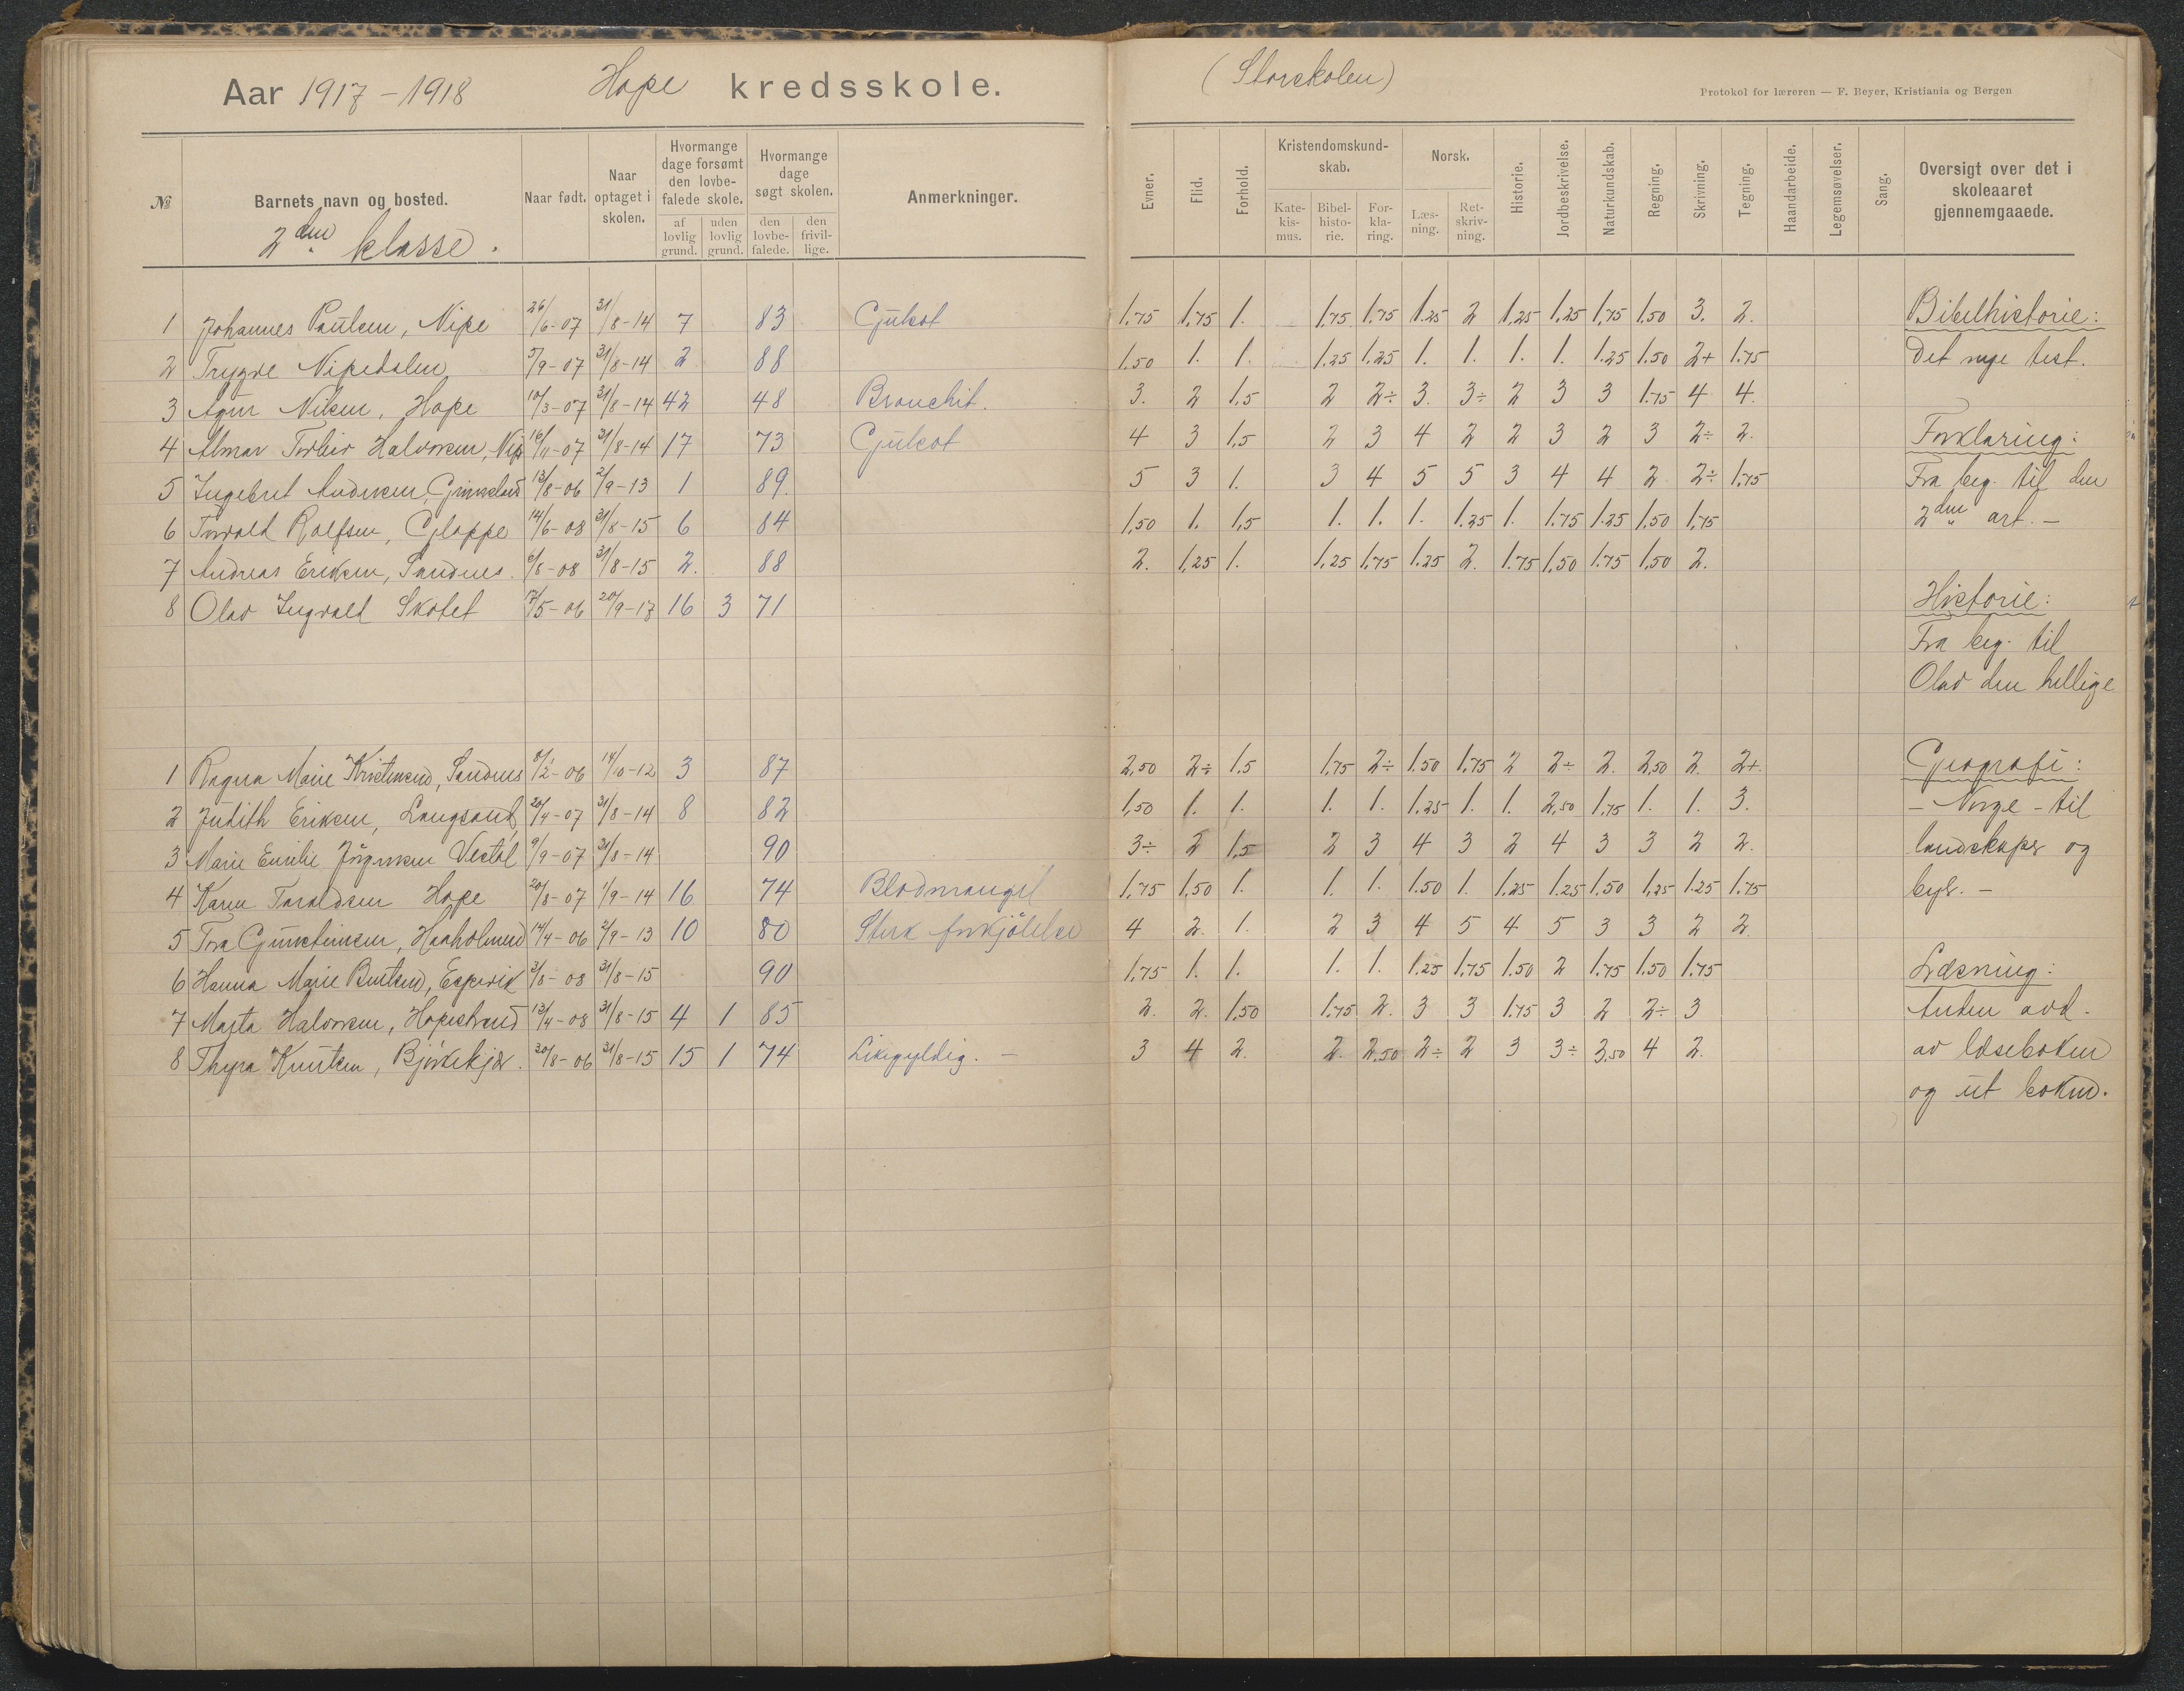 Aar 1917-1918 Hope kredsskole. (Storskolen)
Protokol for læreren — F. Beyer, Kristiania og Bergen
№ Barnets navn og bosted. Naar født. Naar optaget i skolen. Hvormange dage forsømt den lovbefalede skole. af lovlig grund. uden lovlig grund. Hvormange dage søgt skolen. den lovbefalede. den frivillige. Anmerkninger. Evner. Flid. Forhold. Kristendomskundskab. Katekismus. Bibelhistorie. Forklaring. Norsk. Læsning. Retskrivning. Historie. Jordbeskrivelse. Naturkundskab. Regning. Skrivning. Tegning. Haandarbeide. Legemsøvelser. Sang. Oversigt over det i skoleaaret gjennemgaaede.
2den klasse.
1 Johannes Paulsen, Nipe 26/6-07 31/8-14 7 83 Gulsot 1,75 1,75 1. 1,75 1,75 1.25 2 1,25 1,25 1,75 1,50 3. 2. Bibelhistorie:
2 Trygve Nipedalen 5/9-07 31/8-14 2 88 1,50 1. 1. 1.25 1.25 1. 1. 1. 1. 1.25 1.50 2+ 1.75 Det nye test.
3 Agnr Nilsen, Hope 10/3-07 31/8-14 42 48 Bronchit. 3. 2 1,5 2 2÷ 3. 3÷ 2 3 3 1.75 4 4.
4 Almar Torbør Halvorsen, Nip 16/11-07 31/8-14 17 73 Gulsot 4 3 1,5 2 3 4 2 2 3 2 3 2÷ 2. Forklaring:
5 Ingebret Andersen, Grimeland 13/8-06 2/9-13 1 89. 5 3 1. 3 4 5 5 3 4 4 2 2÷ 1,75 Fra beg. til den
6 Torvald Rolfsen, Gloppe 14/6-08 31/8-15 6 84 1,50 1. 1,5 1. 1. 1. 1.25 1. 1.75 1.25 1,50 1,75 2den art. -
7 Andreas Eriksen, Sandnes. 6/8-08 31/8-15 2. 88 2. 1,25 1. 1,25 1,75 1.25 2. 1.75 1,50 1.75 1,50 2.
8 Olav Ingvald Skotet 17/5-06 20/9-17 16 3 71 Historie:
Fra beg. til
Olav den hellige
1 Ragna Marie Kristensen, Sandnes 8/2-06 14/10-12 3 87 2,50 2÷ 1.5 1,75 2÷ 1.50 1,75 2 2÷ 2. 2,50 2. 2+. Geografi:
2 Judith Eriksen, Langsand 20/4-07 31/8-14 8 82 1,50 1. 1. 1. 1. 1.25 1. 1. 2,50 1.75 1. 1. 3. - Norge - til
3 Marie Emilie Jörgensen Vestöl 9/9-07 31/8-14 90 3÷ 2 1,5 2 3 4 3 2 4 3 3 2 2. landskaper og
4 Karen Taraldsen Hope 20/8-07 1/9-14 16 74 Blodmangel 1,75 1,50 1. 1. 1. 1.50 1. 1.25 1.25 1,50 1,25 1.25 1.75 byer. -
5 Tora Gunstensen, Haaholmen 14/4-06 2/9-13 10 80 Sterk forkjölelse 4 2. 1. 2 3 4 5 4 5 3 3 2 2.
6 Hanna Marie Berntsen, Espevik 3/8-08 31/8-15 90 1,75 1. 1. 1. 1. 1.25 1.75 1.50 2 1.75 1,50 1.75 Læsning:
7 Marta Halvorsen, Hopestrand 13/4-08 31/8-15 4 1 85 2. 2. 1,50 1.75 2. 3 3 1.75 3 2 2÷ 3 Anden avd.
8 Thyra Knutsen, Björkekjær. 30/8-06 31/8-15 15 1 74 Likegyldig. - 3 4 2. 2. 2,50 2÷ 2 3 3÷ 3,50 4 2. av læseboken
og ut boken.